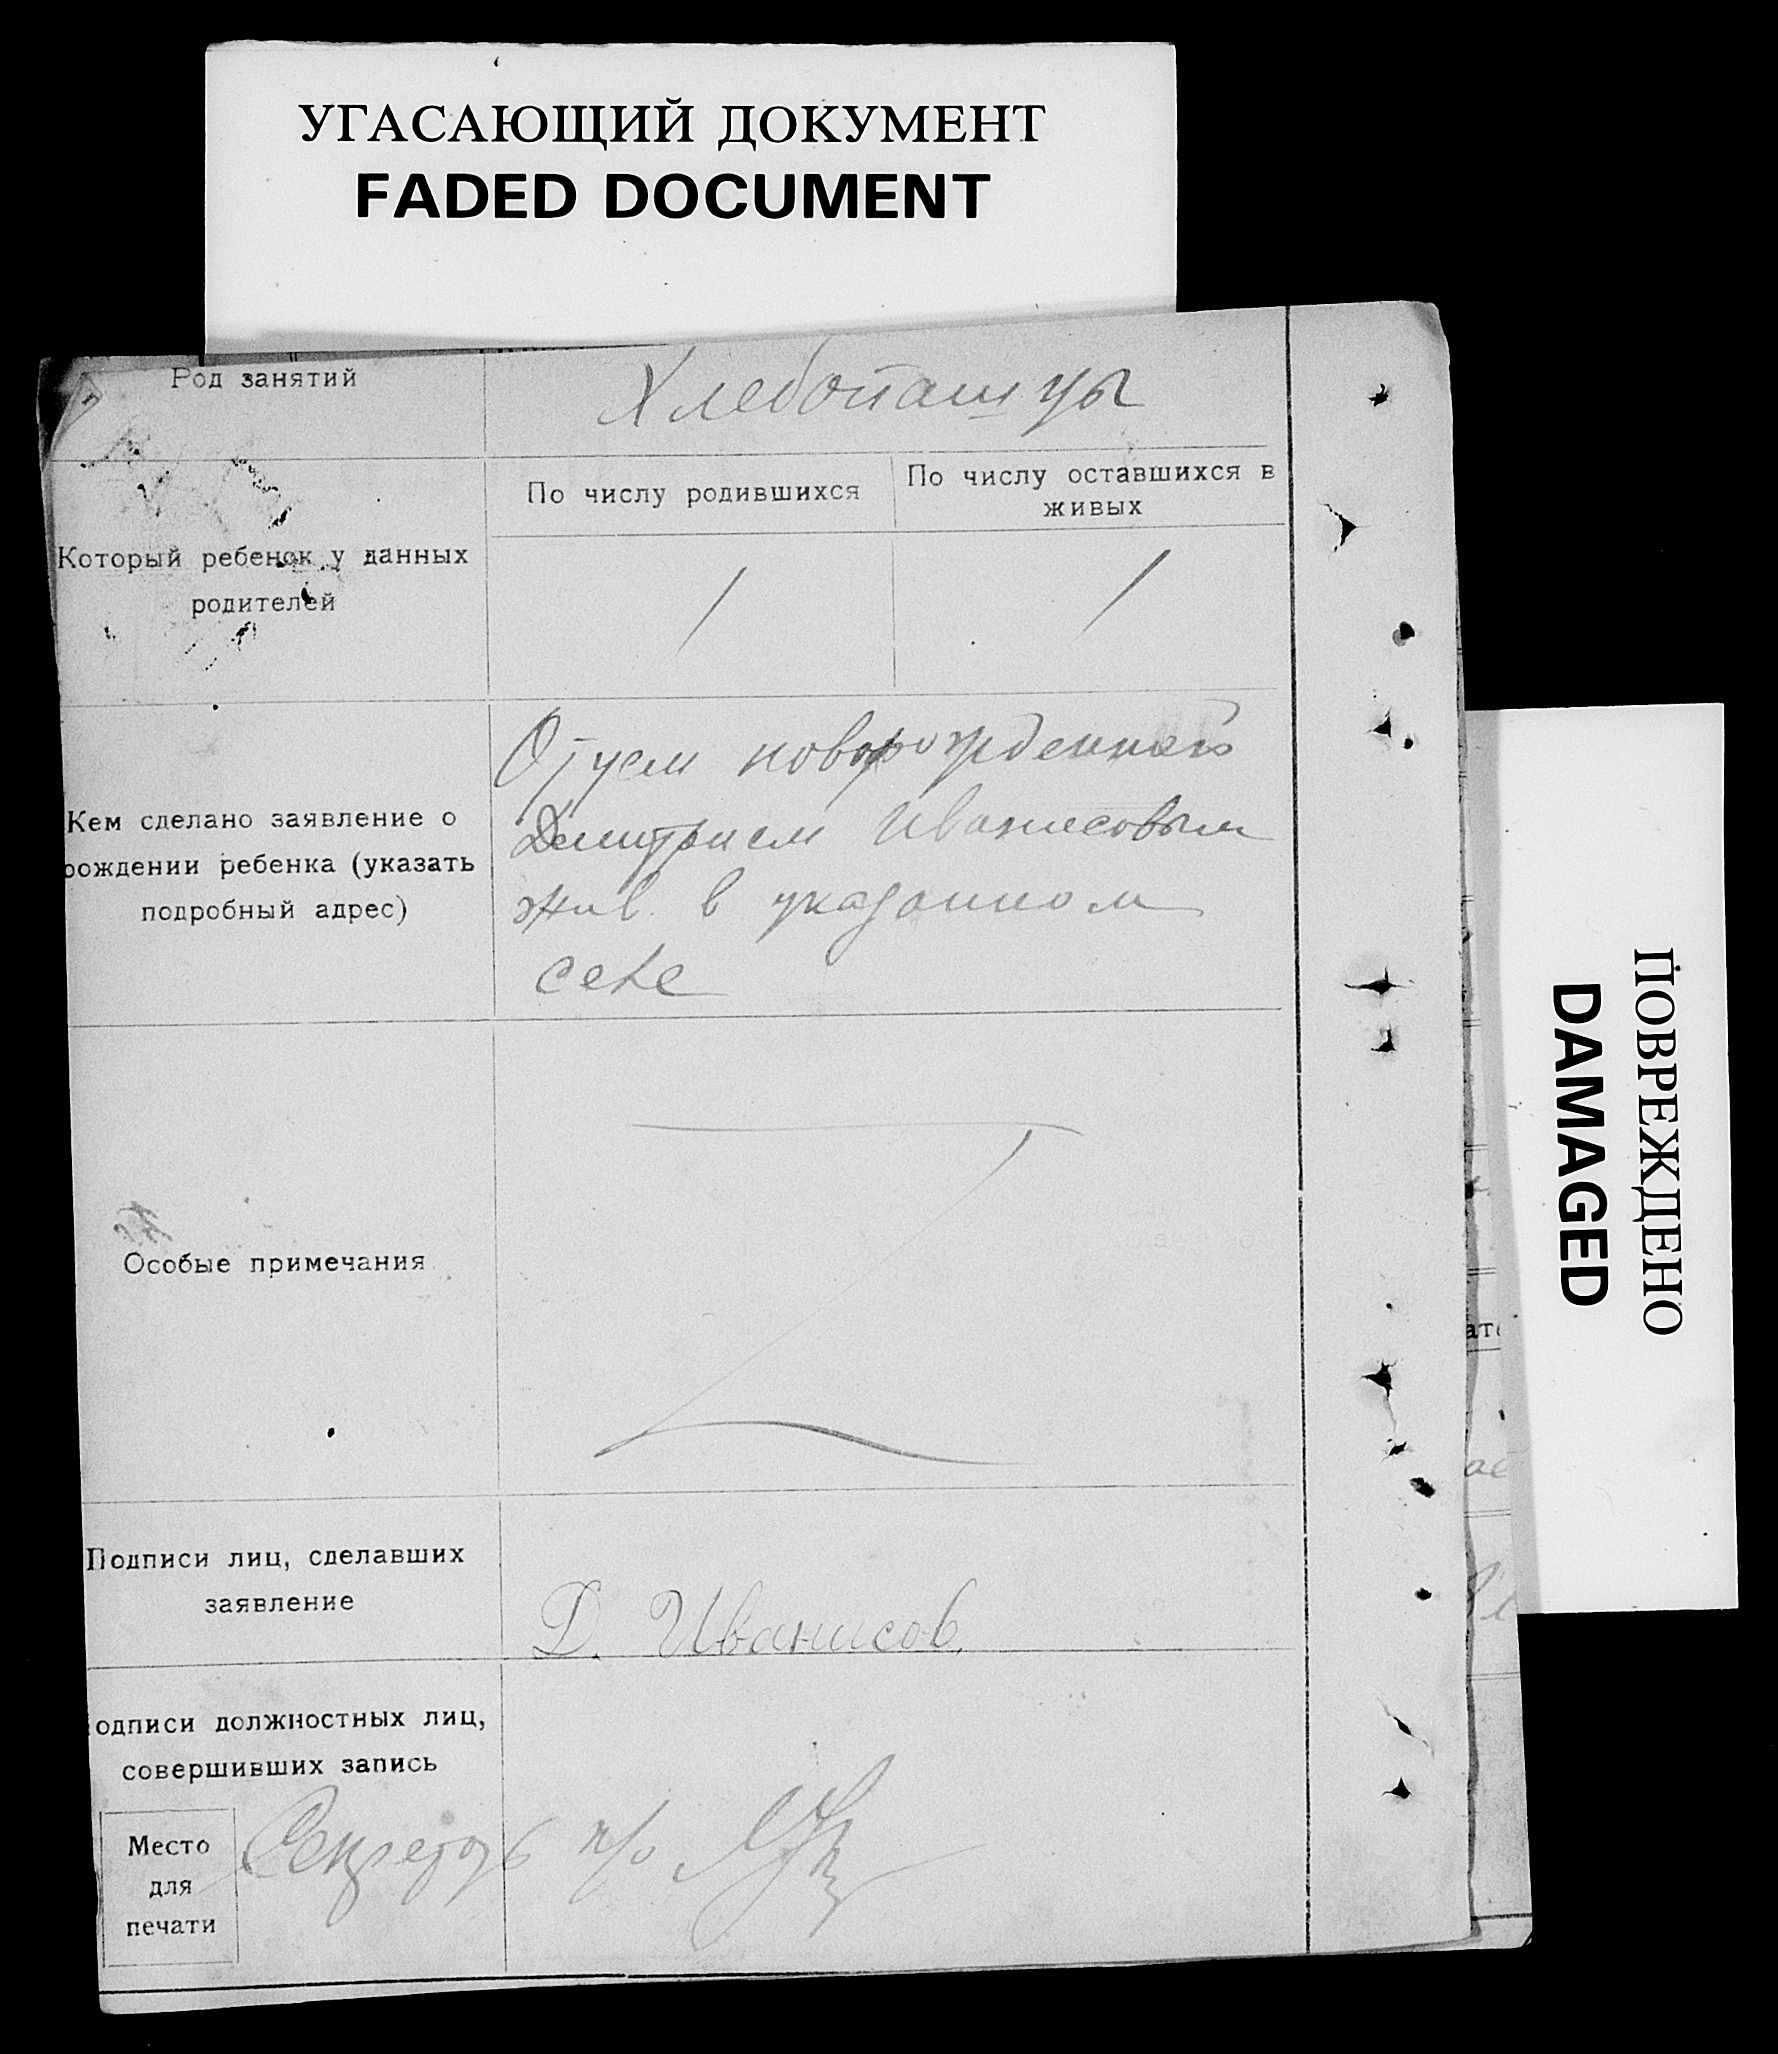 УГАСАЮЩИЙ ДОКУМЕНТ
FADED DOCUMENT
Род занятий
Хлебопашцы
По числу родившихся
По числу оставшихся в
живых
Который ребенок у данных
родителей
1
1
Кем сделано заявление о
рождении ребенка (указать
подробный адрес)
Отцем новорожденного
Дмитрием Иванисовым
жив. в указанном
селе
Особые примечания
Подписи лиц, сделавших
заявление
Д. Иванисов.
одписи должностных лиц,
совершивших запись
Место
для
печати
Секретарь п/о
ПОВРЕЖДЕНО
DAMAGED